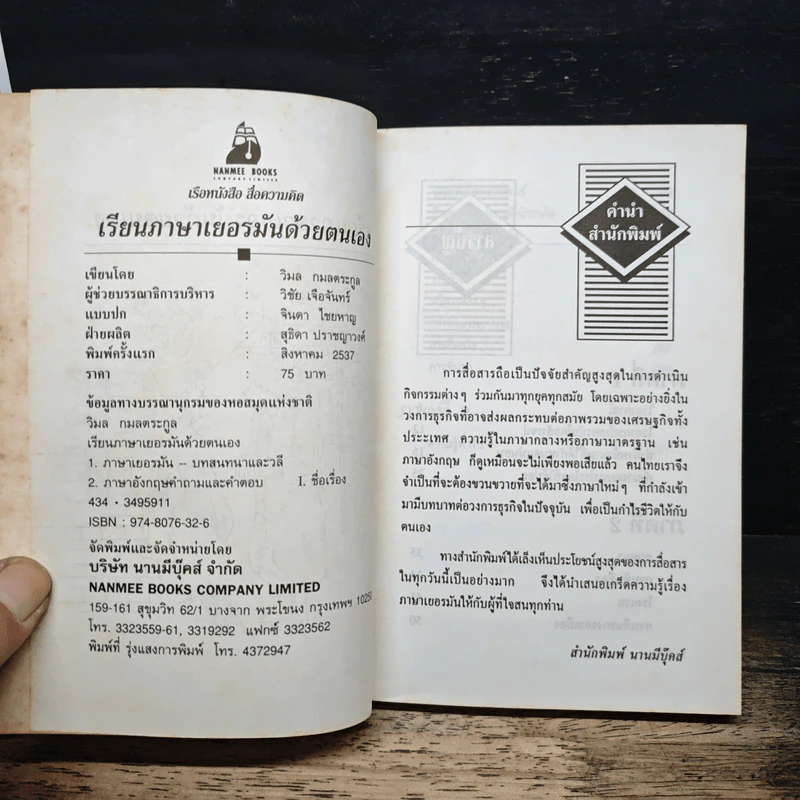 NANMEE BOOKS
COMPANY LIMITED
เรือหนังสือ สื่อความคิด
เรียนภาษาเยอรมันด้วยตนเอง
เขียนโดย : วิมล กมลตระกูล
ผู้ช่วยบรรณาธิการบริหาร : วิชัย เจือจันทร์
แบบปก : จินดา ไชยหาญ
ฝ่ายผลิต : สุธิดา ปราชญาวงศ์
พิมพ์ครั้งแรก : สิงหาคม 2537
ราคา : 75 บาท
ข้อมูลทางบรรณานุกรมของหอสมุดแห่งชาติ
วิมล กมลตระกูล
เรียนภาษาเยอรมันด้วยตนเอง
1. ภาษาเยอรมัน -- บทสนทนาและวลี
2. ภาษาอังกฤษคำถามและคำตอบ I. ชื่อเรื่อง
434 • 3495911
ISBN : 974-8076-32-6
จัดพิมพ์และจัดจำหน่ายโดย
บริษัท นานมีบุ๊คส์ จำกัด
NANMEE BOOKS COMPANY LIMITED
159-161 สุขุมวิท 62/1 บางจาก พระโขนง กรุงเทพฯ 10250
โทร. 3323559-61, 3319292 แฟกซ์ 3323562
พิมพ์ที่ รุ่งแสงการพิมพ์ โทร. 4372947
คำนำ
สำนักพิมพ์
การสื่อสารถือเป็นปัจจัยสำคัญสูงสุดในการดำเนิน
กิจกรรมต่างๆ ร่วมกันมาทุกยุคทุกสมัย โดยเฉพาะอย่างยิ่งใน
วงการธุรกิจที่อาจส่งผลกระทบต่อภาพรวมของเศรษฐกิจทั้ง
ประะเทศ ความรู้ในภาษากลางหรือภาษามาตรฐาน เช่น
ภาษาอังกฤษ ก็ดูเหมือนจะไม่เพียงพอเสียแล้ว คนไทยเราจึง
จำเป็นที่จะต้องขวนขวายที่จะได้มาซึ่งภาษาใหม่ๆ ที่กำลังเข้า
มามีบทบาทต่อวงการธุรกิจในปัจจุบัน เพื่อเป็นกำไรชีวิตให้กับ
ตนเอง
ทางสำนักพิมพ์ได้เล็งเห็นประโยชน์สูงสุดของการสื่อสาร
ในทุกวันนี้เป็นอย่างมาก จึงได้นำเสนอเกร็ดความรู้เรื่อง
ภาษาเยอรมันให้กับผู้ที่ใจสนทุกท่าน
สำนักพิมพ์ นานมีบุ๊คส์